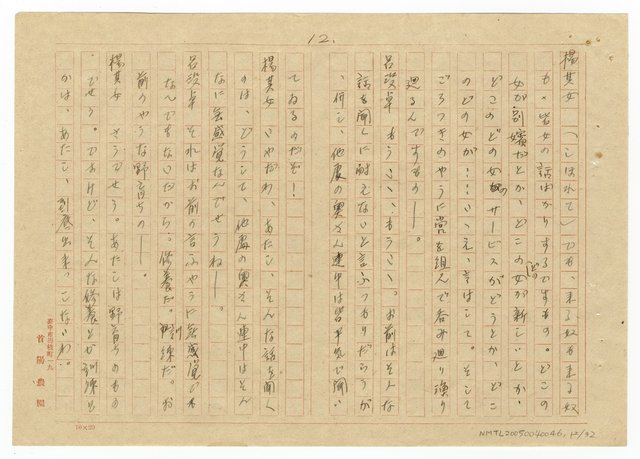 12.
楊其女 (こはれて)でも、来る奴も来る奴
も、皆女の話ばかりするですもの。どこの
女が別嬪だとか、どこのどの女が新しいとか、
どこのどの女奴のサービスがどうとか、どこ
のどの女が……いゝえ、そはして。そして
ごろつきのやうに党を組んで呑み廻り漁り
廻るんですもの――。
呂澄卓 もういゝ、もういゝ。お前はそんな
話を聞くに耐えないと言ふつもりだらうが
、併し、他處の奥さん連中は皆平気で聞い
てゐるのだぞ!
楊其女 いやだわ、あたし、そんな話を聞く
のは、どうして、他處の奥さん連中はそん
なに無感覚なんでせうね――。
呂澄卓 それはお前の言ふやうに無感覚でも
なんでもないだから。修養だ。訓練だ。お
前のやうな野育ちの――。
楊其女 さうでせう。あたしは野育ちのもの
でせう。ですけど、そんな修養とか訓練と
かは、あたし、到底出来っこないわ。
臺中市田枝町一九
首陽農園
(10×20)
NMTL20050040046, 12/32